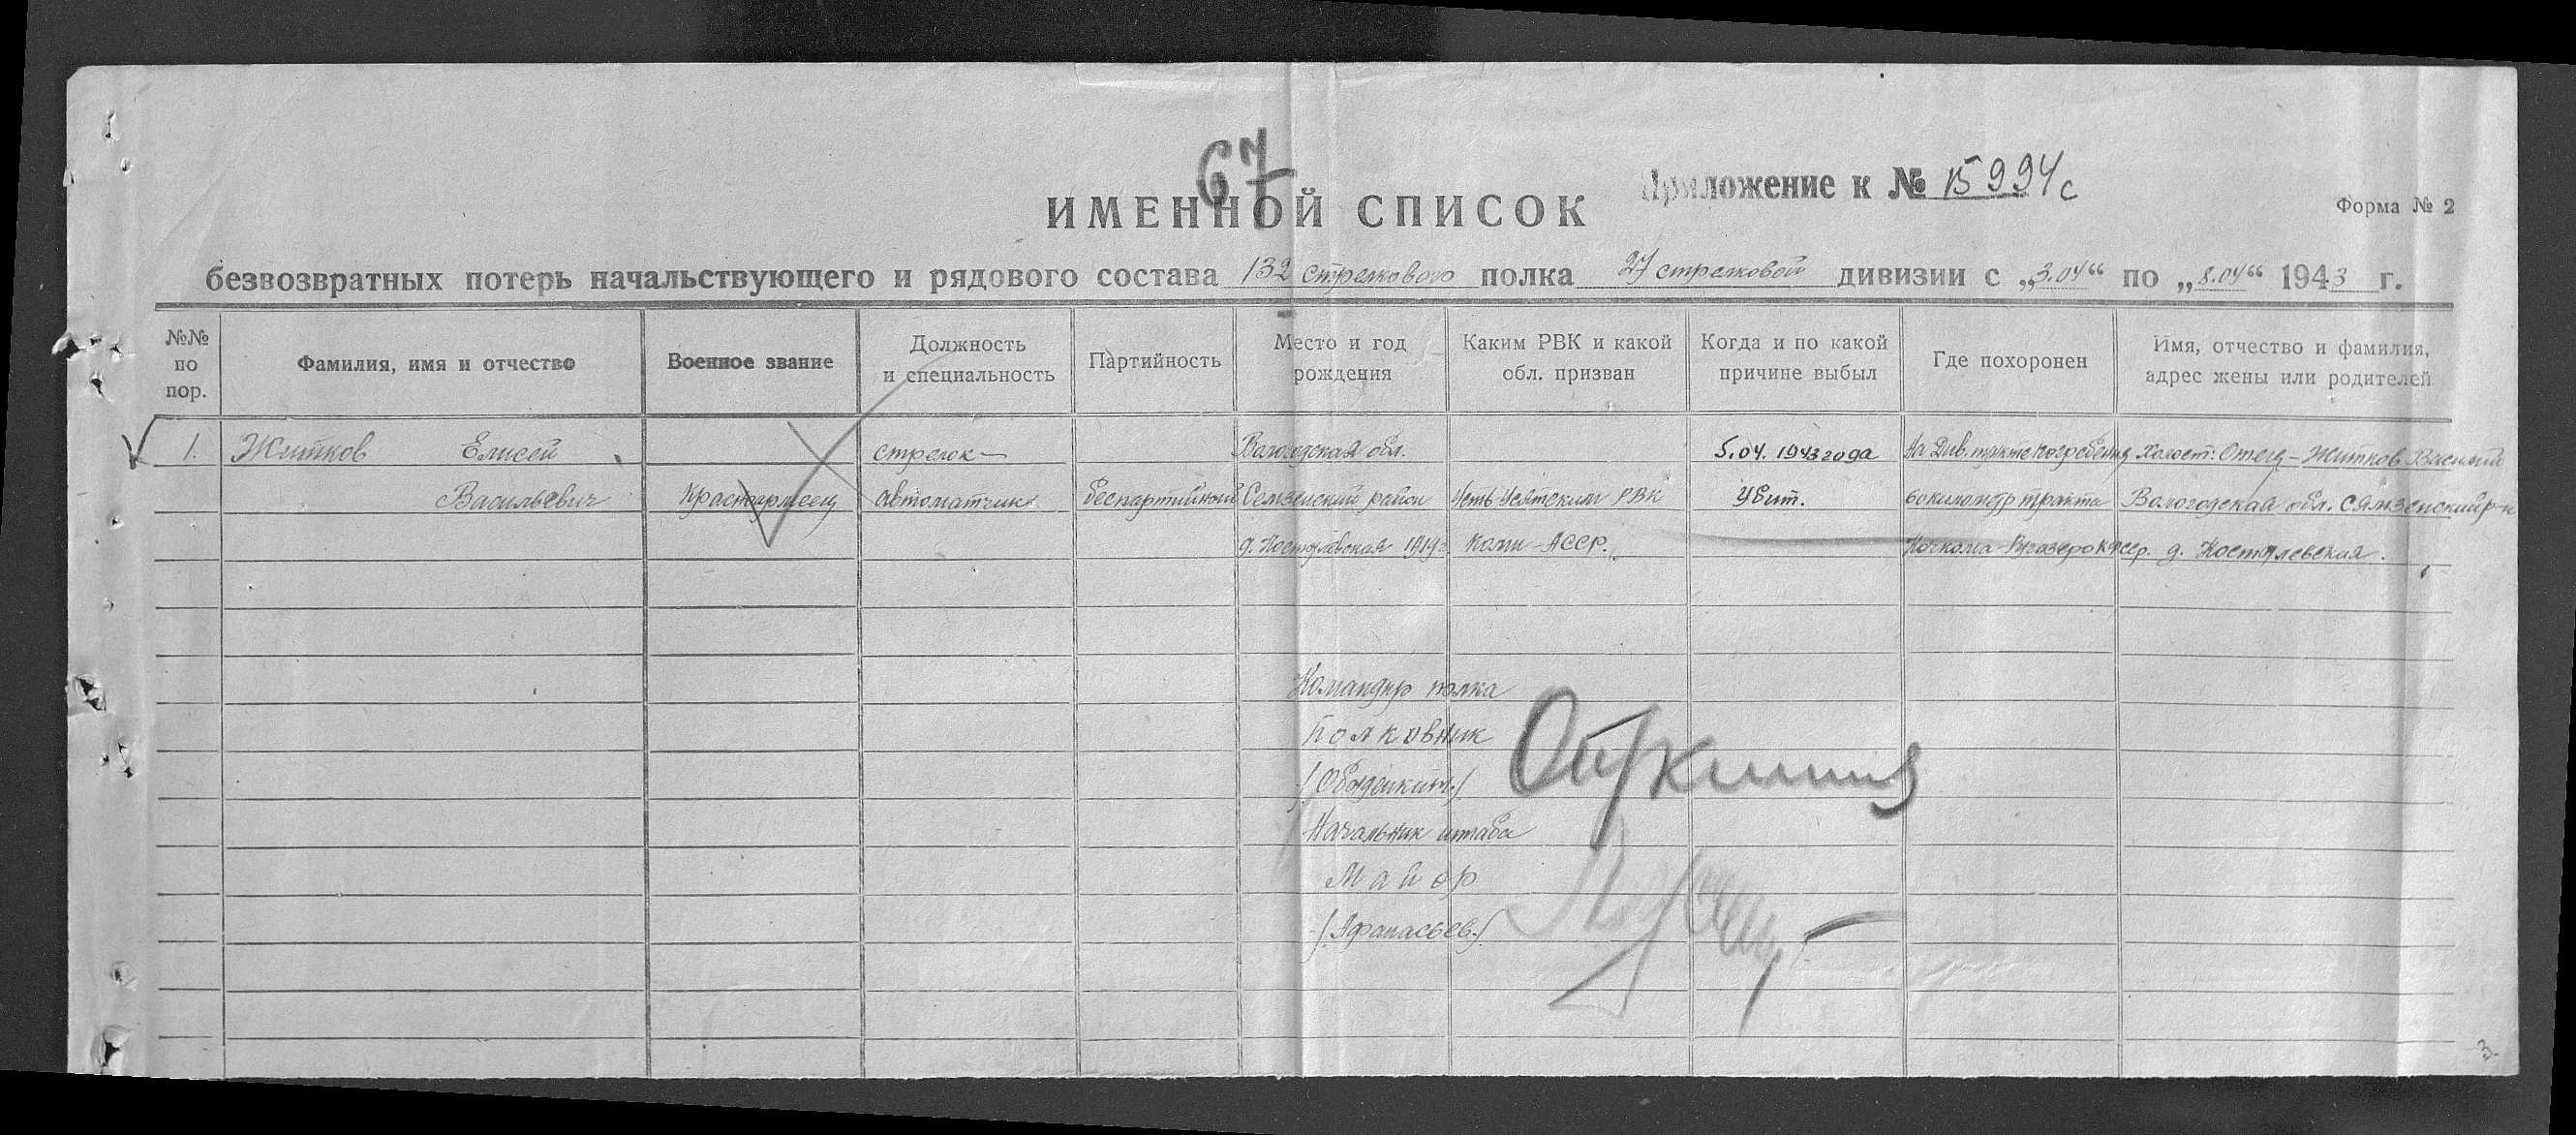 67
Приложение к № 15994с
ИМЕННОЙ СПИСОК
Форма № 2
безвозвратных потерь начальствующего и рядового состава 132 стрелкового полка 27 стрелковой дивизии с „3.04“ по „8.04“ 1943 г.
№№ по пор.
Фамилия, имя и отчество
Военное звание
Должность и специальность
Партийность
Место и год рождения
Каким РВК и какой обл. призван
Когда и по какой причине выбыл
Где похоронен
Имя, отчество и фамилия, адрес жены или родителей
1. Житков Елисей стрелок- Вологодская обл. 5.04.1943 года На Див. пункте погребения Холост: Отец - Житков Василий
Васильевич Красноармеец автоматчик беспартийный Семзенский район Усть Усятским РВК Убит. 60 километр тракта Вологодская обл. Сямзенский р-н
д. 1919г. Коми-АССР. Кочкома-Ругозеро КФССР. д.
Командир полка
Полковник
Начальник штаба
Майор
/Афанасьев/
3.